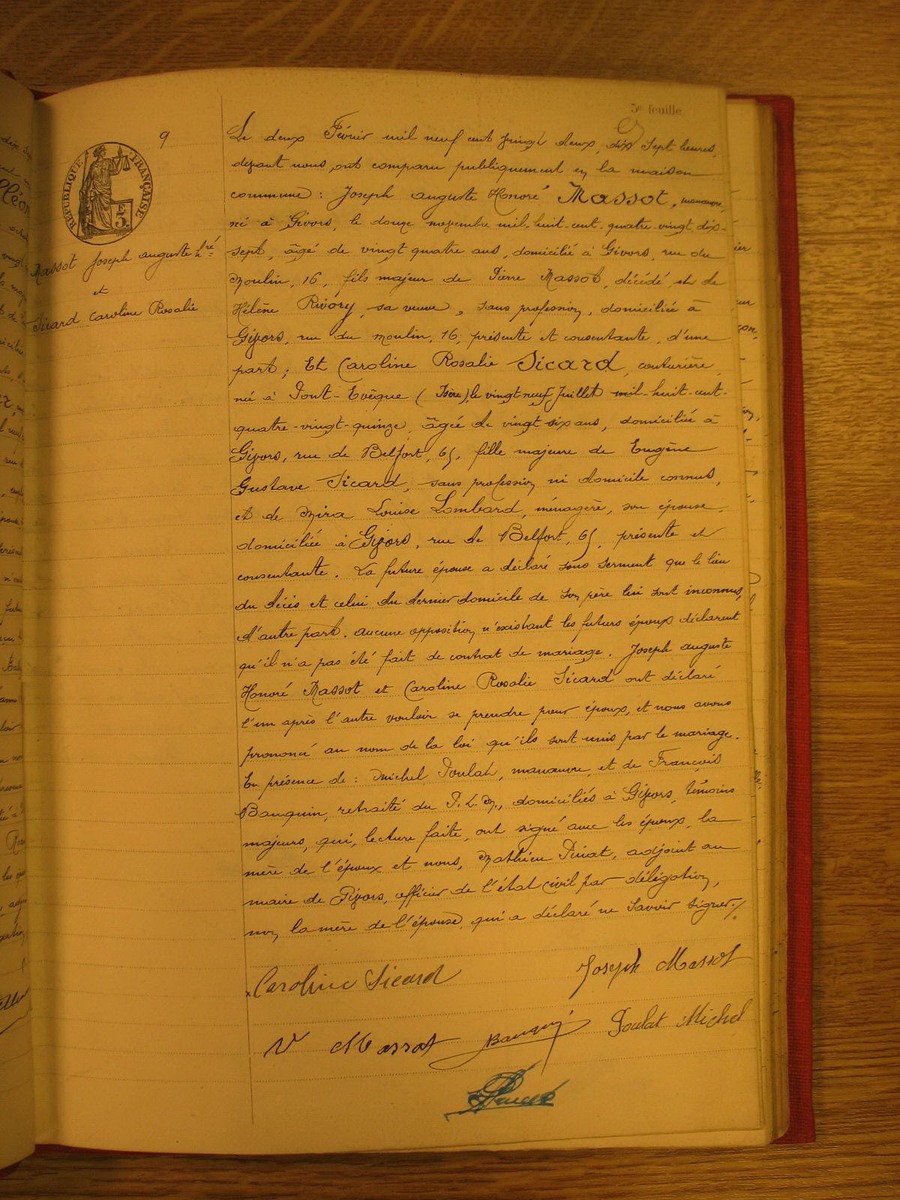 5e feuille
9
RÉPUBLIQUE FRANÇAISE
Massot Joseph auguste Hré
et
Sicard Caroline Rosalie
Le deux Février mil neuf cent vingt deux, dix Sept heures,
devant nous, ont comparu publiquement en la maison
commune : Joseph auguste Honoré Massot, manœuvre
né à Givors, le douze novembre mil-huit-cent-quatre-vingt dix-
sept, âgé de vingt quatre ans, domicilié à Givors, rue du
Moulin, 16, fils majeur de Pierre Massot, décédé, et de
Hélène Rivory, sa veuve, sans profession, domiciliée à
Givors, rue du moulin, 16, présente et consentante, d'une
part ; Et Caroline Rosalie Sicard, couturière,
née à Pont-Evêque (Isère), le vingt-neuf Juillet mil-huit-cent-
quatre-vingt-quinze, âgée de vingt six ans, domiciliée à
Givors, rue de Belfort, 65, fille majeure de Eugène
Gustave Sicard, sans profession ni domicile connus,
et de Mira Louise Lombard, ménagère, son épouse,
domiciliée à Givors, rue de Belfort, 65, présente et
consentante. La future épouse a déclaré sous serment que le lieu
du décès et celui du dernier domicile de son père lui sont inconnus,
d'autre part. aucune opposition n'existant les futurs époux déclarent
qu'il n'a pas été fait de contrat de mariage. Joseph auguste
Honoré Massot et Caroline Rosalie Sicard ont déclaré
l'un après l'autre vouloir se prendre pour époux, et nous avons
prononcé au nom de la loi qu'ils sont unis par le mariage.
En présence de : Michel Poulat, manœuvre, et de François
Bauquin, retraité du P.L.M., domiciliés à Givors, témoins
majeurs, qui, lecture faite, ont signé avec les époux, la
mère de l'époux et nous, Mathieu Pinat, adjoint au
maire de Givors, officier de l'état civil par délégation,
non la mère de l'épouse, qui a déclaré ne savoir signer./.
Caroline Sicard
Joseph Massot
V Massot
Bauquin
Poulat Michel